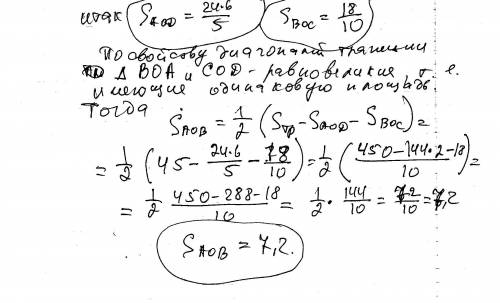 итак S_AOD = 24·6/5 S_BOC = 18/10
По свойству диагоналей трапеции
Δ BOA и COD - равновеликие, т. е.
имеющие одинаковую площадь.
Тогда
S_AOB = 1/2 (S_тр - S_AOD - S_BOC) =
= 1/2 (45 - 24·6/5 - 18/10) = 1/2 (450-144·2-18/10) =
= 1/2 450-288-18/10 = 1/2 · 144/10 = 72/10 = 7,2
S_AOB = 7,2.